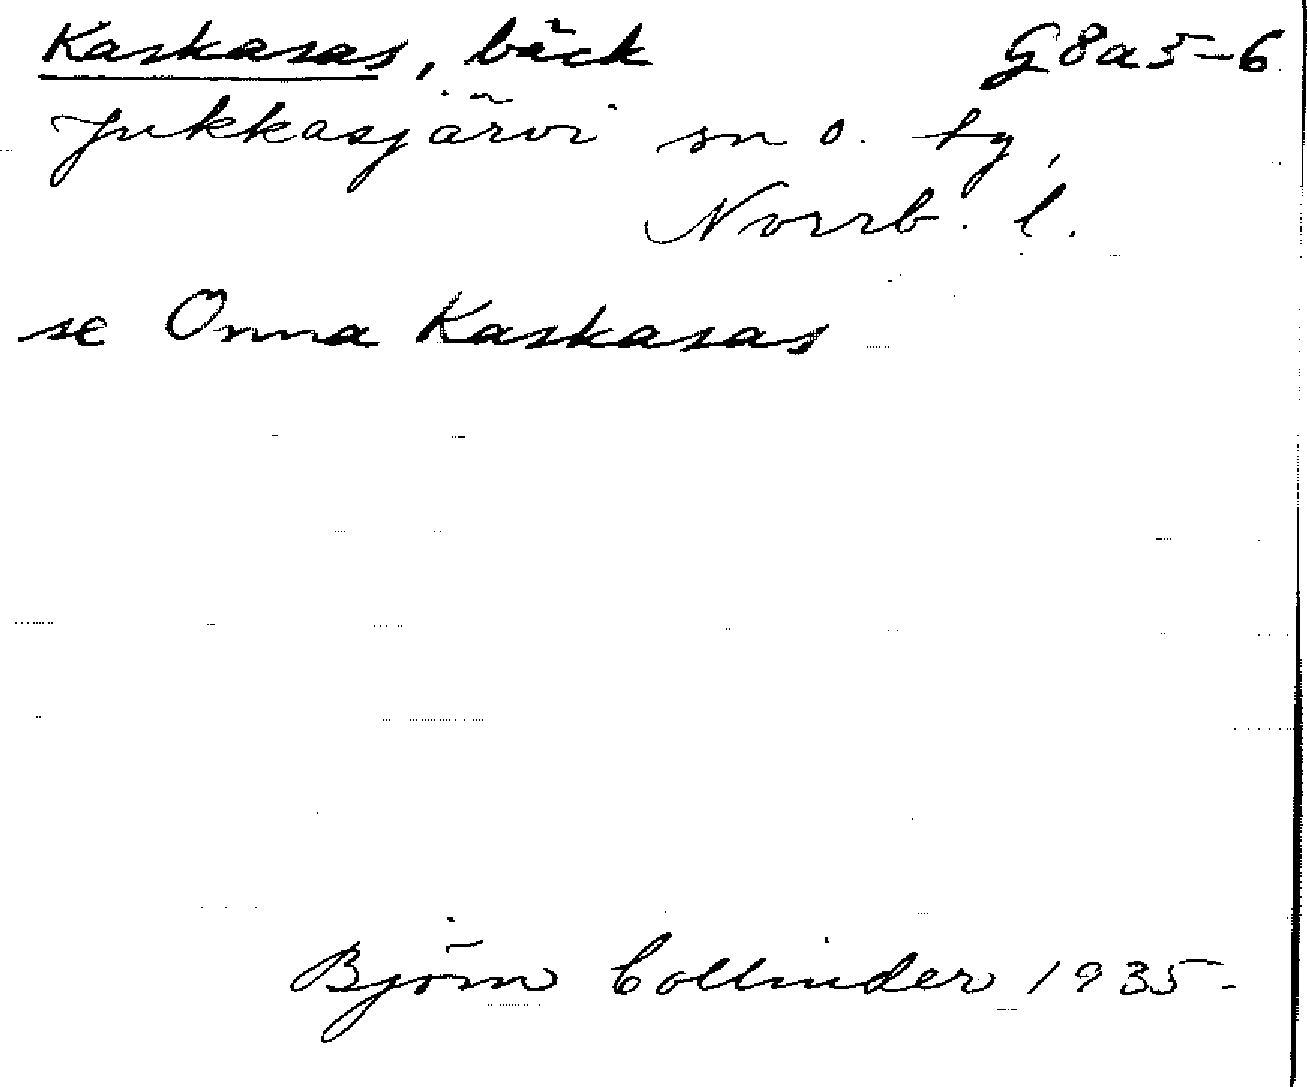 Kaskasas, bäck G8a5-6
Jukkasjärvi sn o. tg,
Norrb. l.
se Onna Kaskasas
Björn Collinder 1935-